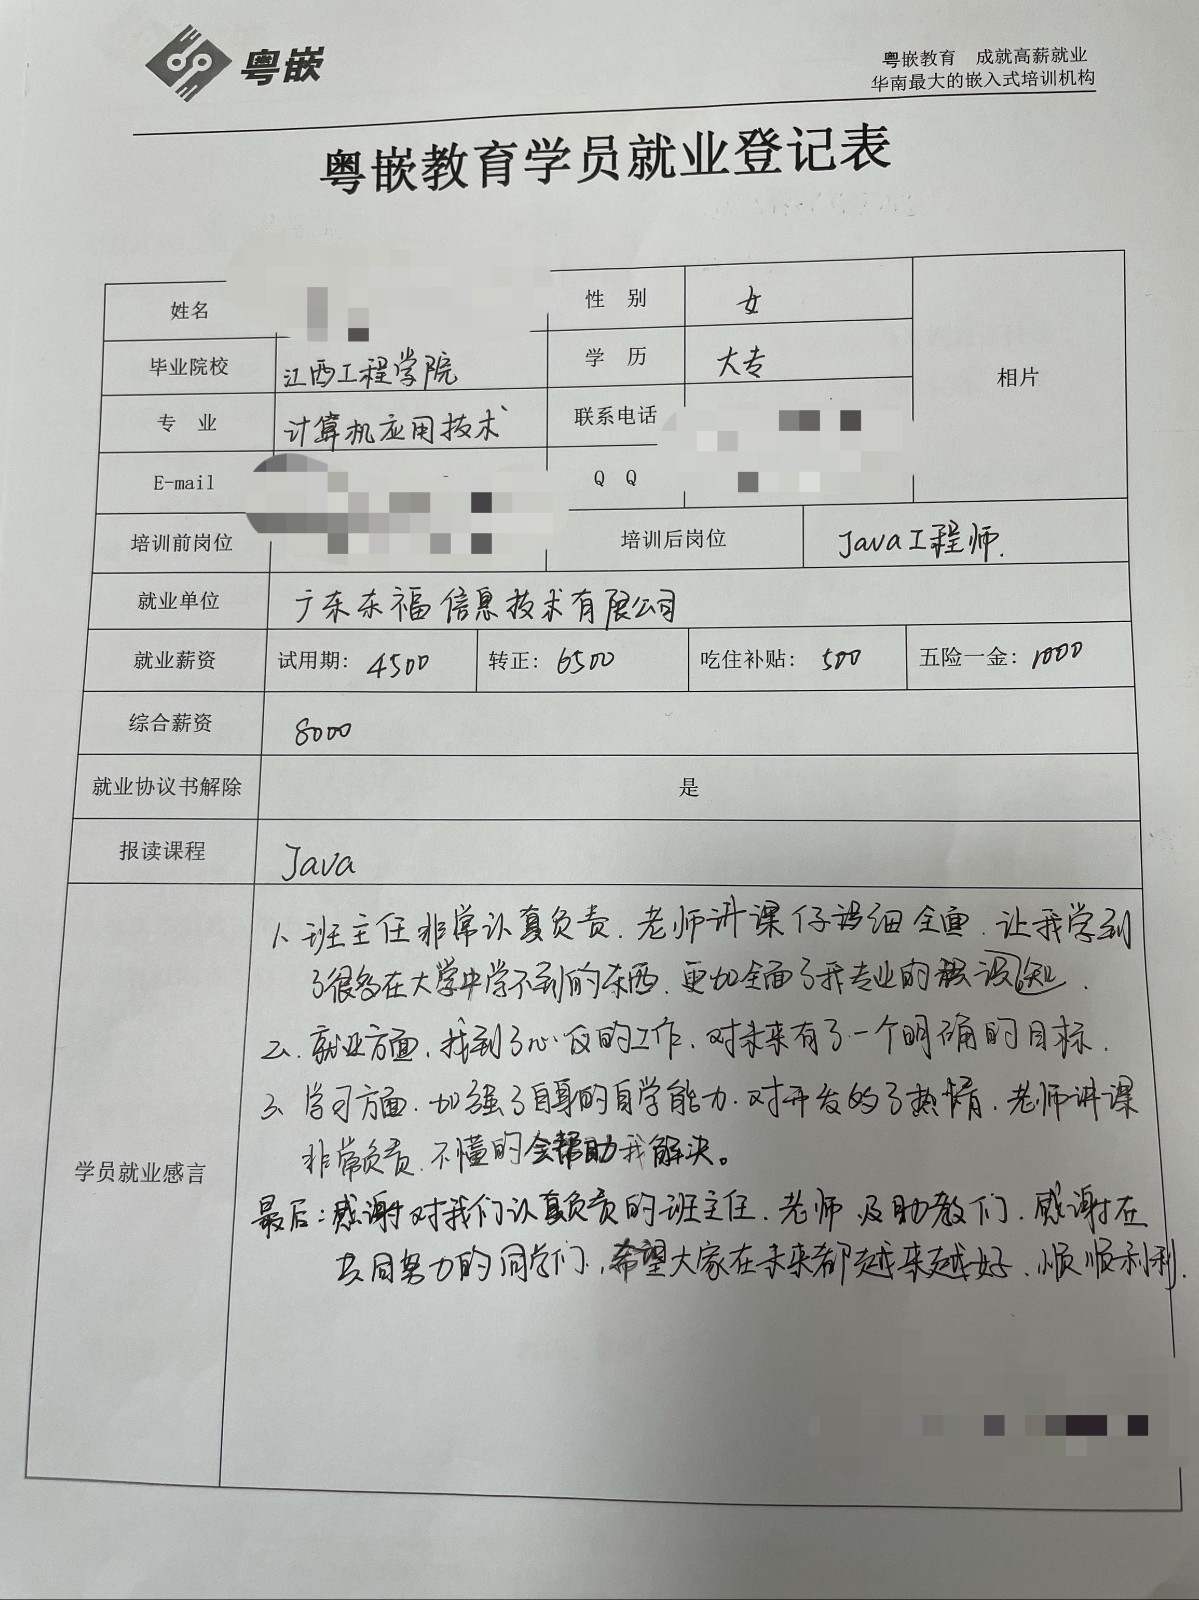 粤嵌
粤嵌教育 成就高薪就业
华南最大的嵌入式培训机构
粤嵌教育学员就业登记表
姓名 性 别 女
毕业院校 江西工程学院 学 历 大专
相片
专 业 计算机应用技术 联系电话
E-mail Q Q
培训前岗位 培训后岗位 Java工程师.
就业单位 广东东福信息技术有限公司
就业薪资 试用期: 4500 转正: 6500 吃住补贴: 500 五险一金: 1000
综合薪资 8000
就业协议书解除 是
报读课程 Java
学员就业感言
1、班主任非常认真负责.老师讲课仔细全面.让我学到
了很多在大学中学不到的东西.更加全面了我专业的知识.
2、就业方面.找到了心仪的工作.对未来有了一个明确的目标.
3、学习方面.加强了自身的自学能力.对开发的了热情.老师讲课
非常负责.不懂的会帮助我解决。
最后:感谢对我们认真负责的班主任.老师及助教们.感谢在
共同努力的同学们,希望大家在未来都越来越好.顺顺利利.